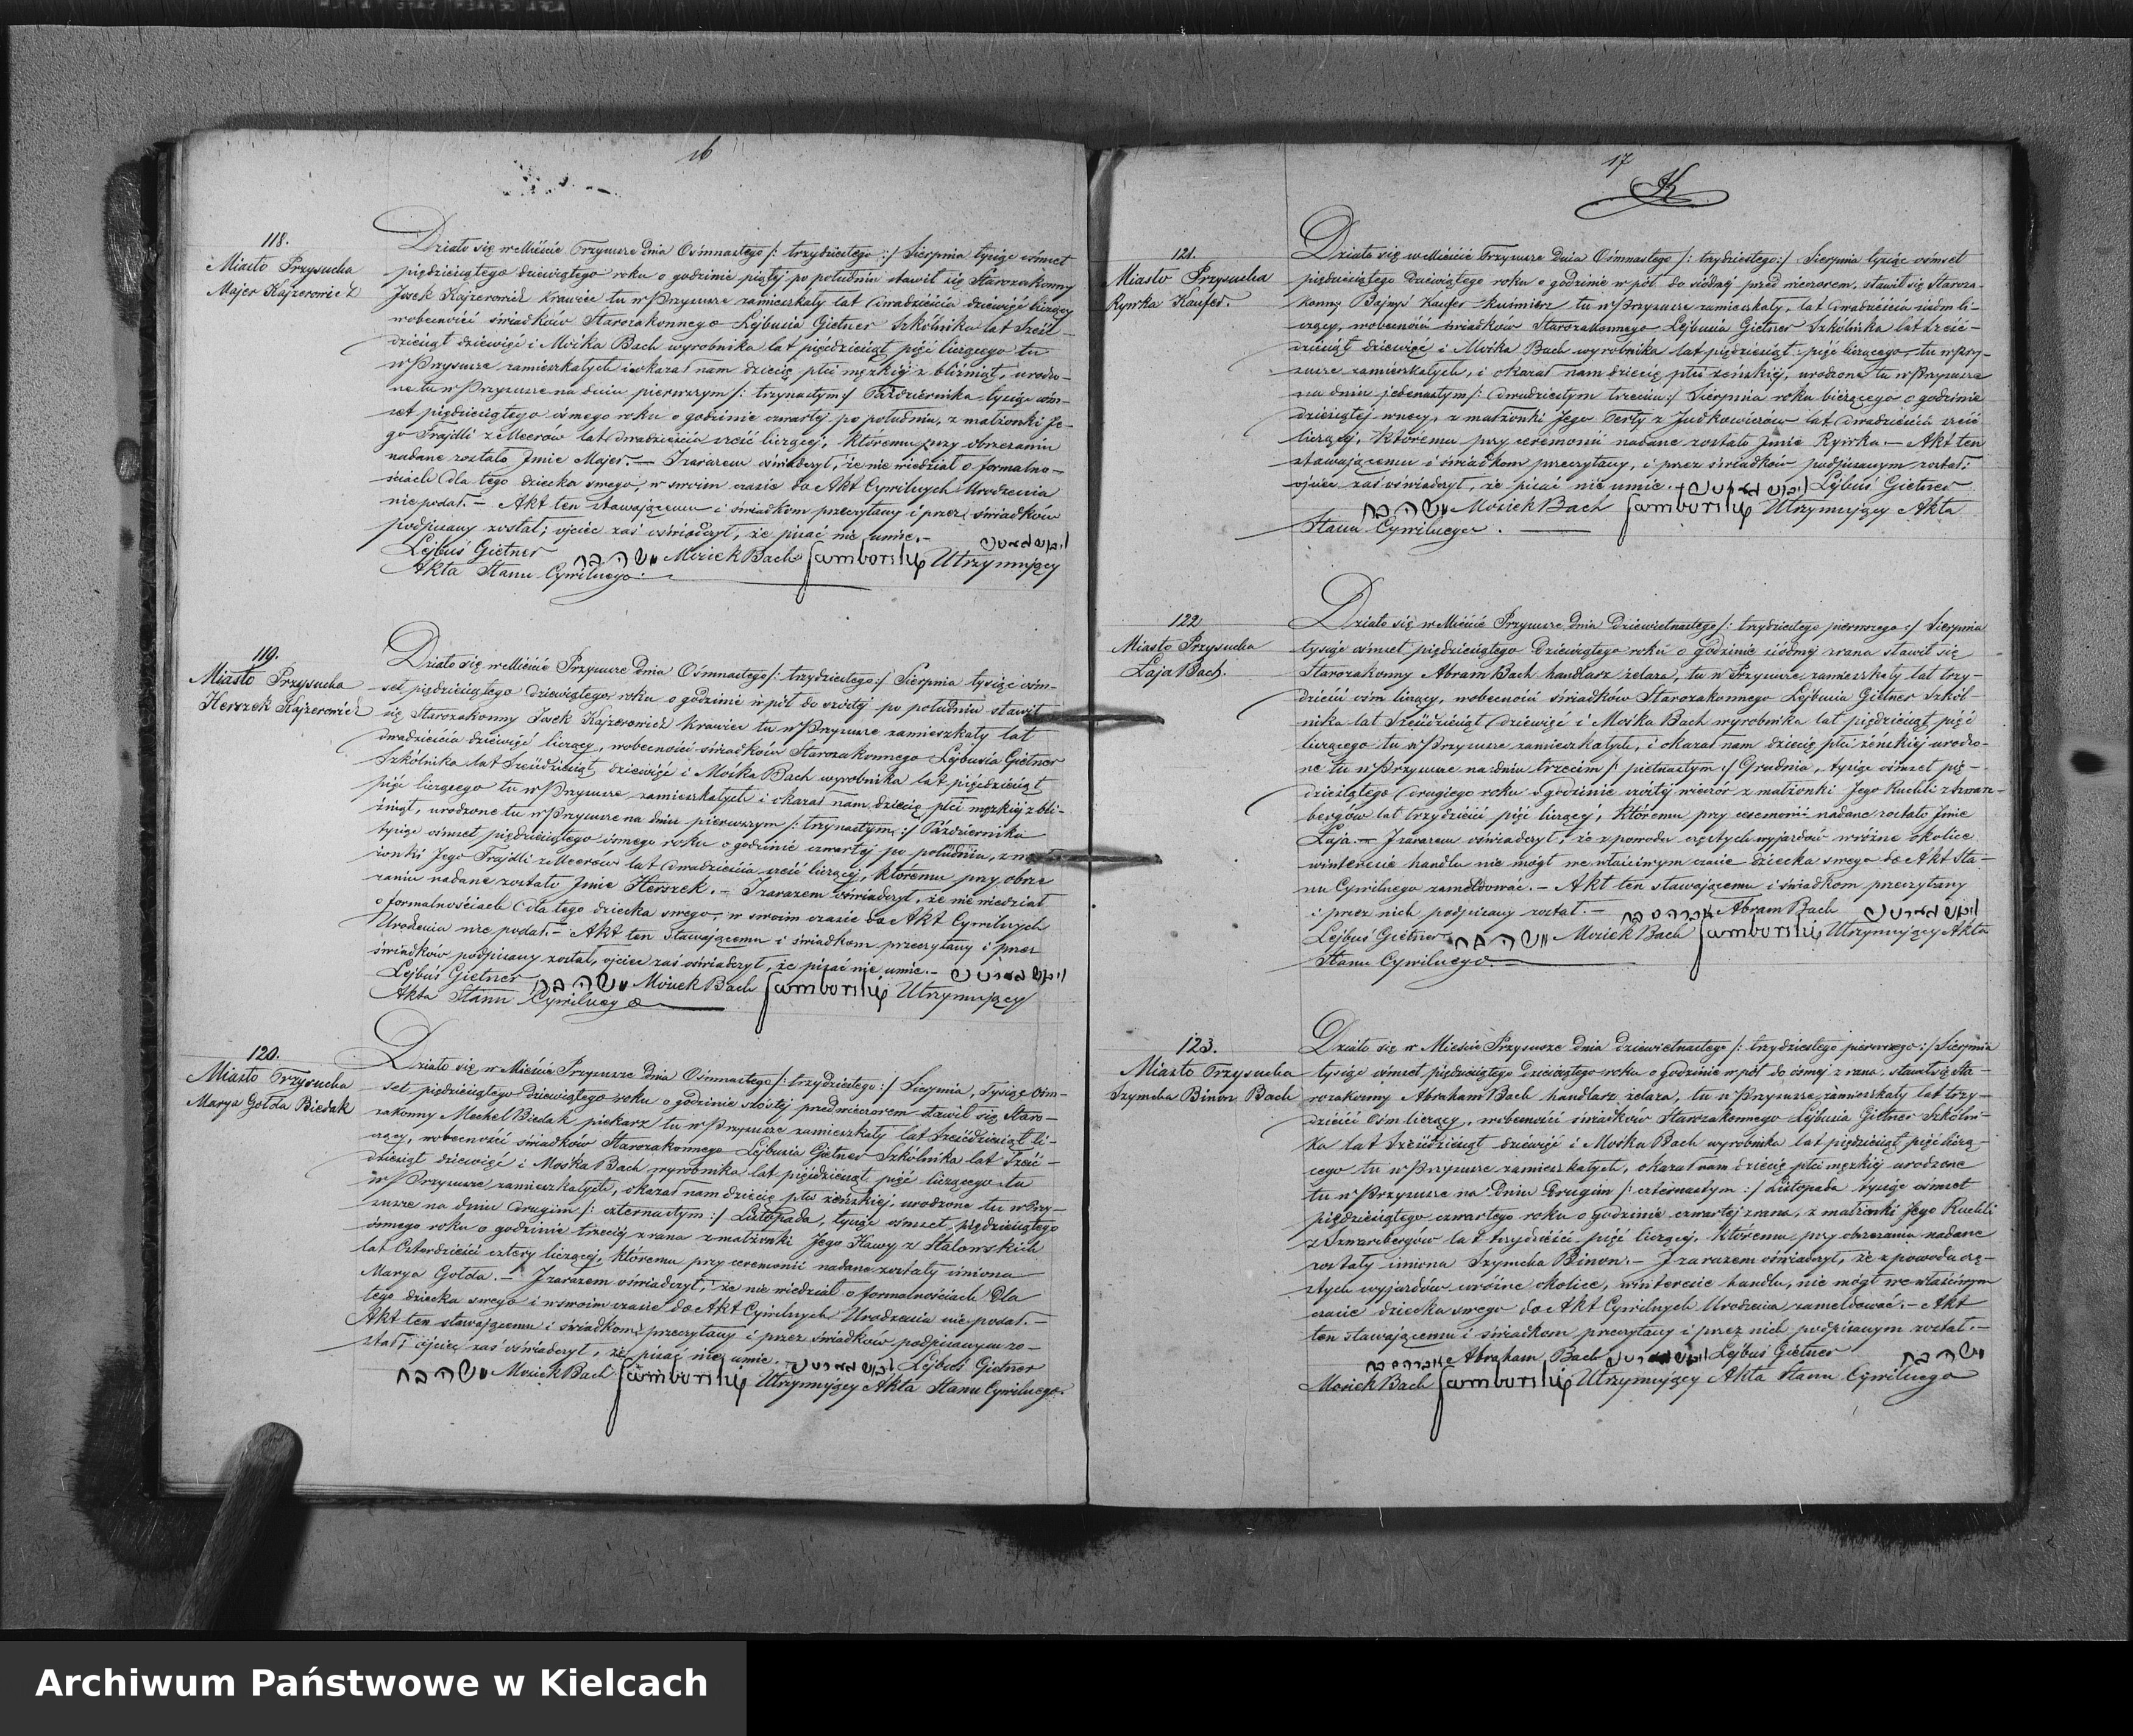 16
118.
Miasto Przysucha
Majer Kajzerowicz
Działo się w Mieście Przysusze dnia Ośmnastego /: trzydziestego :/ Sierpnia tysiąc ośmset
pięćdziesiątego dziewiątego roku o godzinie piątej po południu stawił się Starozakonny
Josek Kajzerowicz krawiec tu w Przysusze zamieszkały lat dwadzieścia dziewięć liczący
w obecności świadków Starozakonnego Lejbusia Gietner Szkólnika lat Sześć-
dziesiąt dziewięć i Mośka Bach wyrobnika lat pięćdziesiąt pięć liczącego tu
w Przysusze zamieszkałych i okazał nam dziecię płci męzkiej z bliźniąt, urodzo-
ne tu w Przysusze na dniu pierwszym /: trzynastym :/ Października tysiąc ośm-
set pięćdziesiątego ósmego roku o godzinie czwartej po południu, z małżonki Je-
go Frajdli z Meerów lat dwadzieścia sześć liczącej, któremu przy obrzezaniu
nadane zostało Jmie Majer. — I zarazem oświadczył, że nie wiedział o formalno-
ściach dla tego dziecka swego, w swoim czasie do Akt Cywilnych Urodzenia
nie podał. — Akt ten stawającemu i świadkom przeczytany i przez świadków
podpisany został; ojciec zaś oświadczył, że pisać nie umie. —
Lejbuś Gietner משה בך Mosiek Bach Samborski Utrzymujący
Akta Stanu Cywilnego.
119.
Miasto Przysucha
Herszek Kajzerowicz
Działo się w Mieście Przysusze dnia Ośmnastego /: trzydziestego :/ Sierpnia tysiąc ośm-
set pięćdziesiątego dziewiątego roku o godzinie w pół do szóstej po południu stawił
się Starozakonny Josek Kajzerowicz krawiec tu w Przysusze zamieszkały lat
dwadzieścia dziewięć liczący, w obecności świadków Starozakonnego Lejbusia Gietner
Szkólnika lat Sześćdziesiąt dziewięć i Mośka Bach wyrobnika lat pięćdziesiąt
pięć liczącego tu w Przysusze zamieszkałych i okazał nam dziecię płci męzkiej z bli-
źniąt, urodzone tu w Przysusze na dniu pierwszym /: trzynastym :/ Października
tysiąc ośmset pięćdziesiątego ósmego roku o godzinie czwartej po południu, z mał-
żonki Jego Frajdli z Meerów lat dwadzieścia sześć liczącej, któremu przy obrze
zaniu nadane zostało Jmie Herszek. — I zarazem oświadczył, że nie wiedział
o formalnościach dla tego dziecka swego, w swoim czasie do Akt Cywilnych
Urodzenia nie podał. — Akt ten stawającemu i świadkom przeczytany i przez
świadków podpisany został, ojciec zaś oświadczył, że pisać nie umie. —
Lejbuś Gietner משה בך Mosiek Bach Samborski Utrzymujący
Akta Stanu Cywilnego
120.
Miasto Przysucha
Marya Gołda Biedak
Działo się w Mieście Przysusze dnia Ośmnastego /: trzydziestego :/ Sierpnia, Tysiąc ośm-
set pięćdziesiątego Dziewiątego roku o godzinie szóstej przed wieczorem stawił się Staro-
zakonny Mechel Biedak piekarz tu w Przysusze zamieszkały lat Sześćdziesiąt li-
czący, w obecności świadków Starozakonnego Lejbusia Gietner Szkólnika lat Sześć-
dziesiąt dziewięć i Mośka Bach wyrobnika lat pięćdziesiąt pięć liczącego tu
w Przysusze zamieszkałych, okazał nam dziecię płci żeńskiej, urodzone tu w Przy-
susze na dniu drugim /: czternastym :/ Listopada, tysiąc ośmset pięćdziesiątego
ósmego roku o godzinie trzeciej z rana z małżonki Jego Hawy z Stalowskich
lat Czterdzieści cztery liczącej, któremu przy ceremonii nadane zostały imiona
Marya Gołda. — I zarazem oświadczył, że nie wiedział o formalnościach dla
tego dziecka swego i w swoim czasie do Akt Cywilnych Urodzenia nie podał. —
Akt ten stawającemu i świadkom przeczytany i przez świadków podpisanym zo-
stał; ojciec zaś oświadczył, że pisać nie umie. — Lejbuś Gietner
משה בך Mosiek Bach Samborski Utrzymujący Akta Stanu Cywilnego.
17
121.
Miasto Przysucha
Rywka Kaufer.
Działo się w Mieście Przysusze dnia Ośmnastego /: trzydziestego :/ Sierpnia tysiąc ośmset
pięćdziesiątego Dziewiątego roku o godzinie w pół do siódmej przed wieczorem, stawił się Staroza-
konny Bajnyś Kaufer kuśmierz tu w Przysusze zamieszkały, lat dwadzieścia siedm li-
czący, w obecności świadków Starozakonnego Lejbusia Gietner Szkólnika lat sześć-
dziesiąt dziewięć i Mośka Bach wyrobnika lat pięćdziesiąt pięć liczącego, tu w Przy-
susze zamieszkałych, i okazał nam dziecię płci żeńskiej, urodzone tu w Przysusze
na dniu jedenastym /: dwudziestym trzecim :/ Sierpnia roku bieżącego o godzinie
dziesiątej w nocy, z małżonki Jego Perły z Judkowiczów lat dwadzieścia sześć
liczącej, któremu przy ceremonii nadane zostało Jmie Rywka. — Akt ten
stawającemu i świadkom przeczytany, i przez świadków podpisanym został;
ojciec zaś oświadczył, że pisać nie umie. — Lejbuś Gietner
משה בך Mosiek Bach Samborski Utrzymujący Akta
Stanu Cywilnego.
122
Miasto Przysucha
Łaja Bach.
Działo się w Mieście Przysusze dnia Dziewietnastego /: trzydziestego pierwszego :/ Sierpnia
tysiąc ośmset pięćdziesiątego Dziewiątego roku o godzinie siódmej z rana stawił się
Starozakonny Abram Bach handlarz żelaza, tu w Przysusze zamieszkały lat trzy-
dzieści ośm liczący, w obecności świadków Starozakonnego Lejbusia Gietner Szkól-
nika lat Sześćdziesiąt dziewięć i Mośka Bach wyrobnika lat pięćdziesiąt pięć
liczącego tu w Przysusze zamieszkałych, i okazał nam dziecię płci żeńskiej urodzo-
ne tu w Przysusze na dniu trzecim /: piętnastym :/ Grudnia, tysiąc ośmset pię-
dziesiątego drugiego roku o godzinie szóstej wieczór z małżonki Jego Ruchli z Szwarc-
bergów lat trzydzieści pięć liczącej, któremu przy ceremonii nadane zostało Jmie
Łaja. — I zarazem oświadczył, że z powodu częstych wyjazdów w różne okolice
w interesie handlu nie mógł we właściwym czasie dziecka swego do Akt Sta-
nu Cywilnego zameldować. — Akt ten stawającemu i świadkom przeczytany
i przez nich podpisany został. — אברהם בך Abram Bach
Lejbuś Gietner משה בך Mosiek Bach Samborski Utrzymujący Akta
Stanu Cywilnego. —
123.
Miasto Przysucha
Szymcha Binon Bach
Działo się w Mieście Przysusze dnia dziewietnastego /: trzydziestego pierwszego :/ Sierpnia
tysiąc ośmset pięćdziesiątego Dziewiątego roku o godzinie w pół do ósmej z rana, stawił się Sta-
rozakonny Abraham Bach handlarz żelaza, tu w Przysusze zamieszkały lat trzy-
dzieści ośm liczący, w obecności świadków Starozakonnego Lejbusia Gietner Szkólni-
ka lat Sześćdziesiąt dziewięć i Mośka Bach wyrobnika lat pięćdziesiąt pięć liczą-
cego tu w Przysusze zamieszkałych, okazał nam dziecię płci męzkiej urodzone
tu w Przysusze na Dniu Drugim /: czternastym :/ Listopada tysiąc ośmset
pięćdziesiątego czwartego roku o godzinie czwartej z rana, z małżonki Jego Ruchli
z Szwarcbergów lat trzydzieści pięć liczącej, któremu przy obrzezaniu nadane
zostały imiona Szymcha Binon. — I zarazem oświadczył, że z powodu czę-
stych wyjazdów w różne okolice, w interesie handlu, nie mógł we właściwym
czasie dziecka swego do Akt Cywilnych Urodzenia zameldować. — Akt
ten stawającemu i świadkom przeczytany i przez nich podpisanym został. —
אברהם בך Abraham Bach Lejbuś Gietner משה בך
Mosiek Bach Samborski Utrzymujący Akta Stanu Cywilnego
Archiwum Państwowe w Kielcach